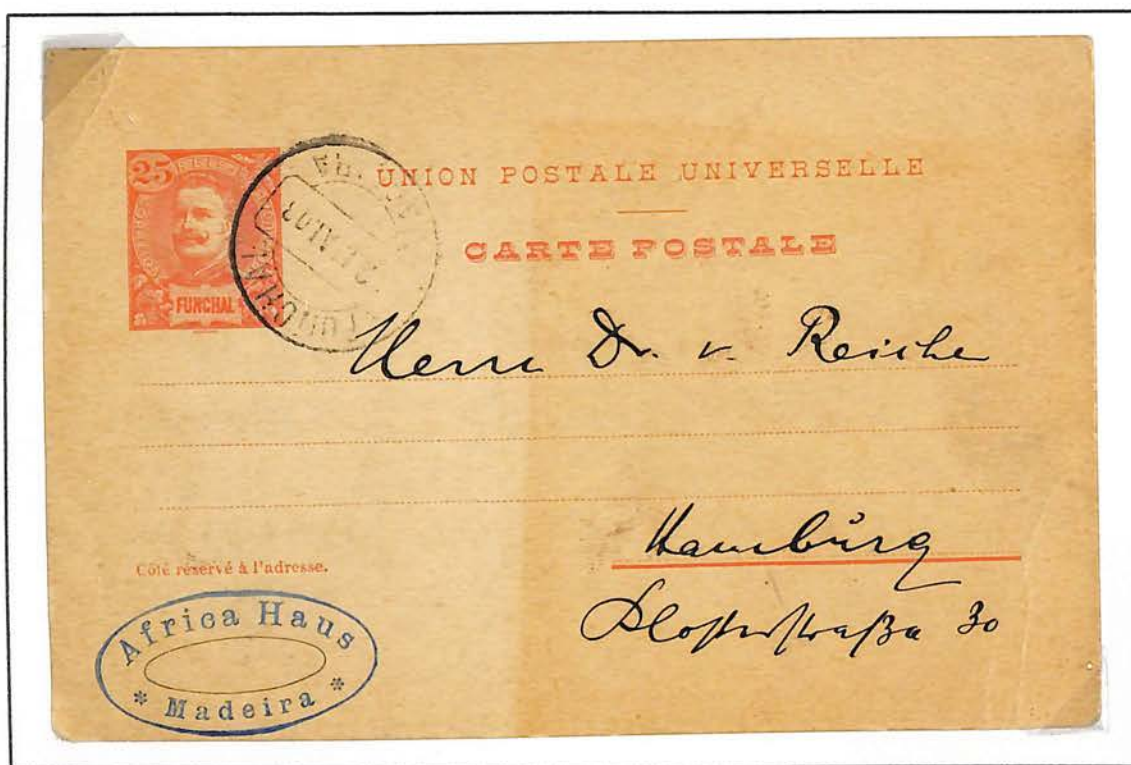 25
FUNCHAL
UNION POSTALE UNIVERSELLE
CARTE POSTALE
FUNCHAL
Herrn Dr. v. Reiche
Hamburg
Klosterstraße 30
Côté réservé à l'adresse.
Africa Haus
* Madeira *